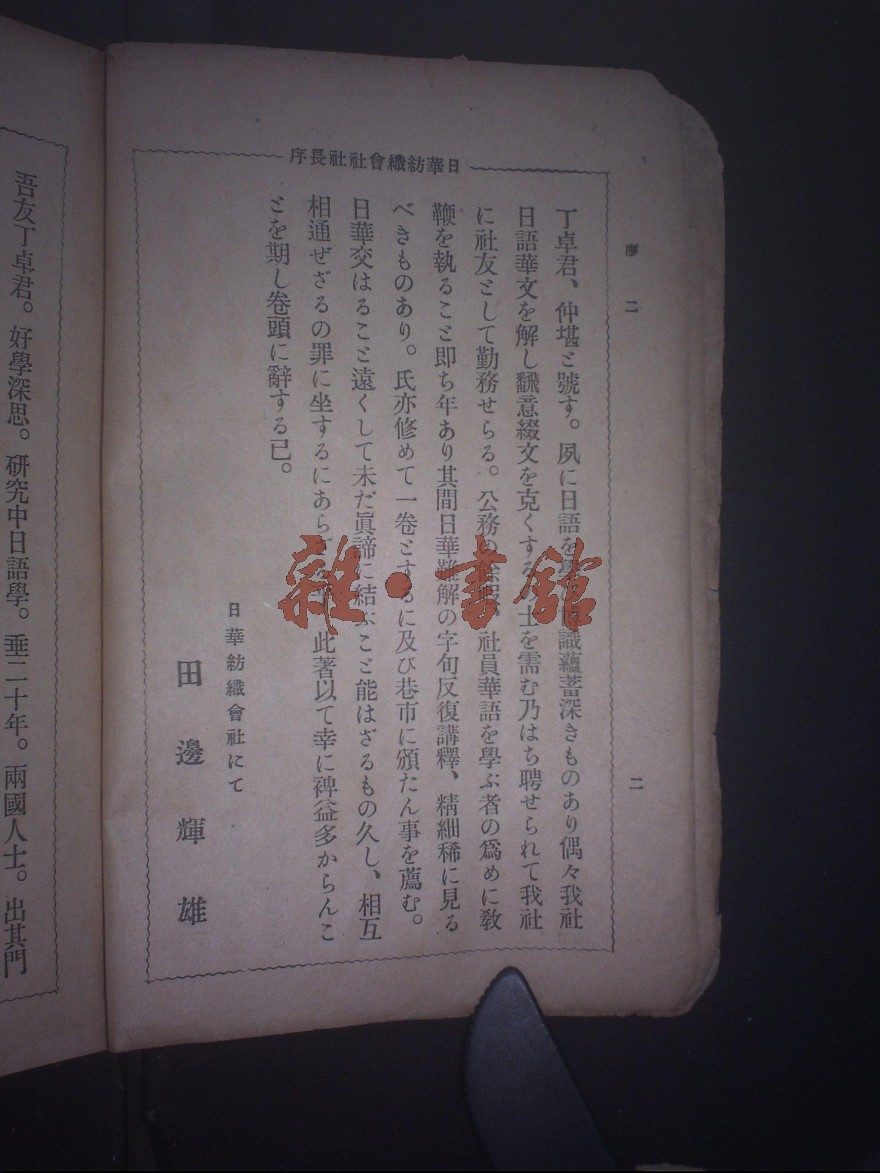 日華紡織會社社長序
丁卓君、仲堪と號す。夙に日語を學び博識蘊蓄深きものあり偶々我社
日語華文を解し飜意綴文を克くする人士を需む乃はち聘せられて我社
に社友として勤務せらる。公務の餘暇、社員華語を學ぶ者の爲めに敎
鞭を執ること即ち年あり其間日華難解の字句反復講釋、精細稀に見る
べきものあり。氏亦修めて一卷とするに及び巷市に頒たん事を薦む。
日華交はること遠くして未だ眞諦に結ぶこと能はざるもの久し、相互
相通ぜざるの罪に坐するにあら 此著以て幸に裨益多からんこ
とを期し卷頭に辭する已。
日華紡織會社にて
田邊輝雄
序二
二
吾友丁卓君。好學深思。研究中日語學。垂二十年。兩國人士。出其門
雜·書館